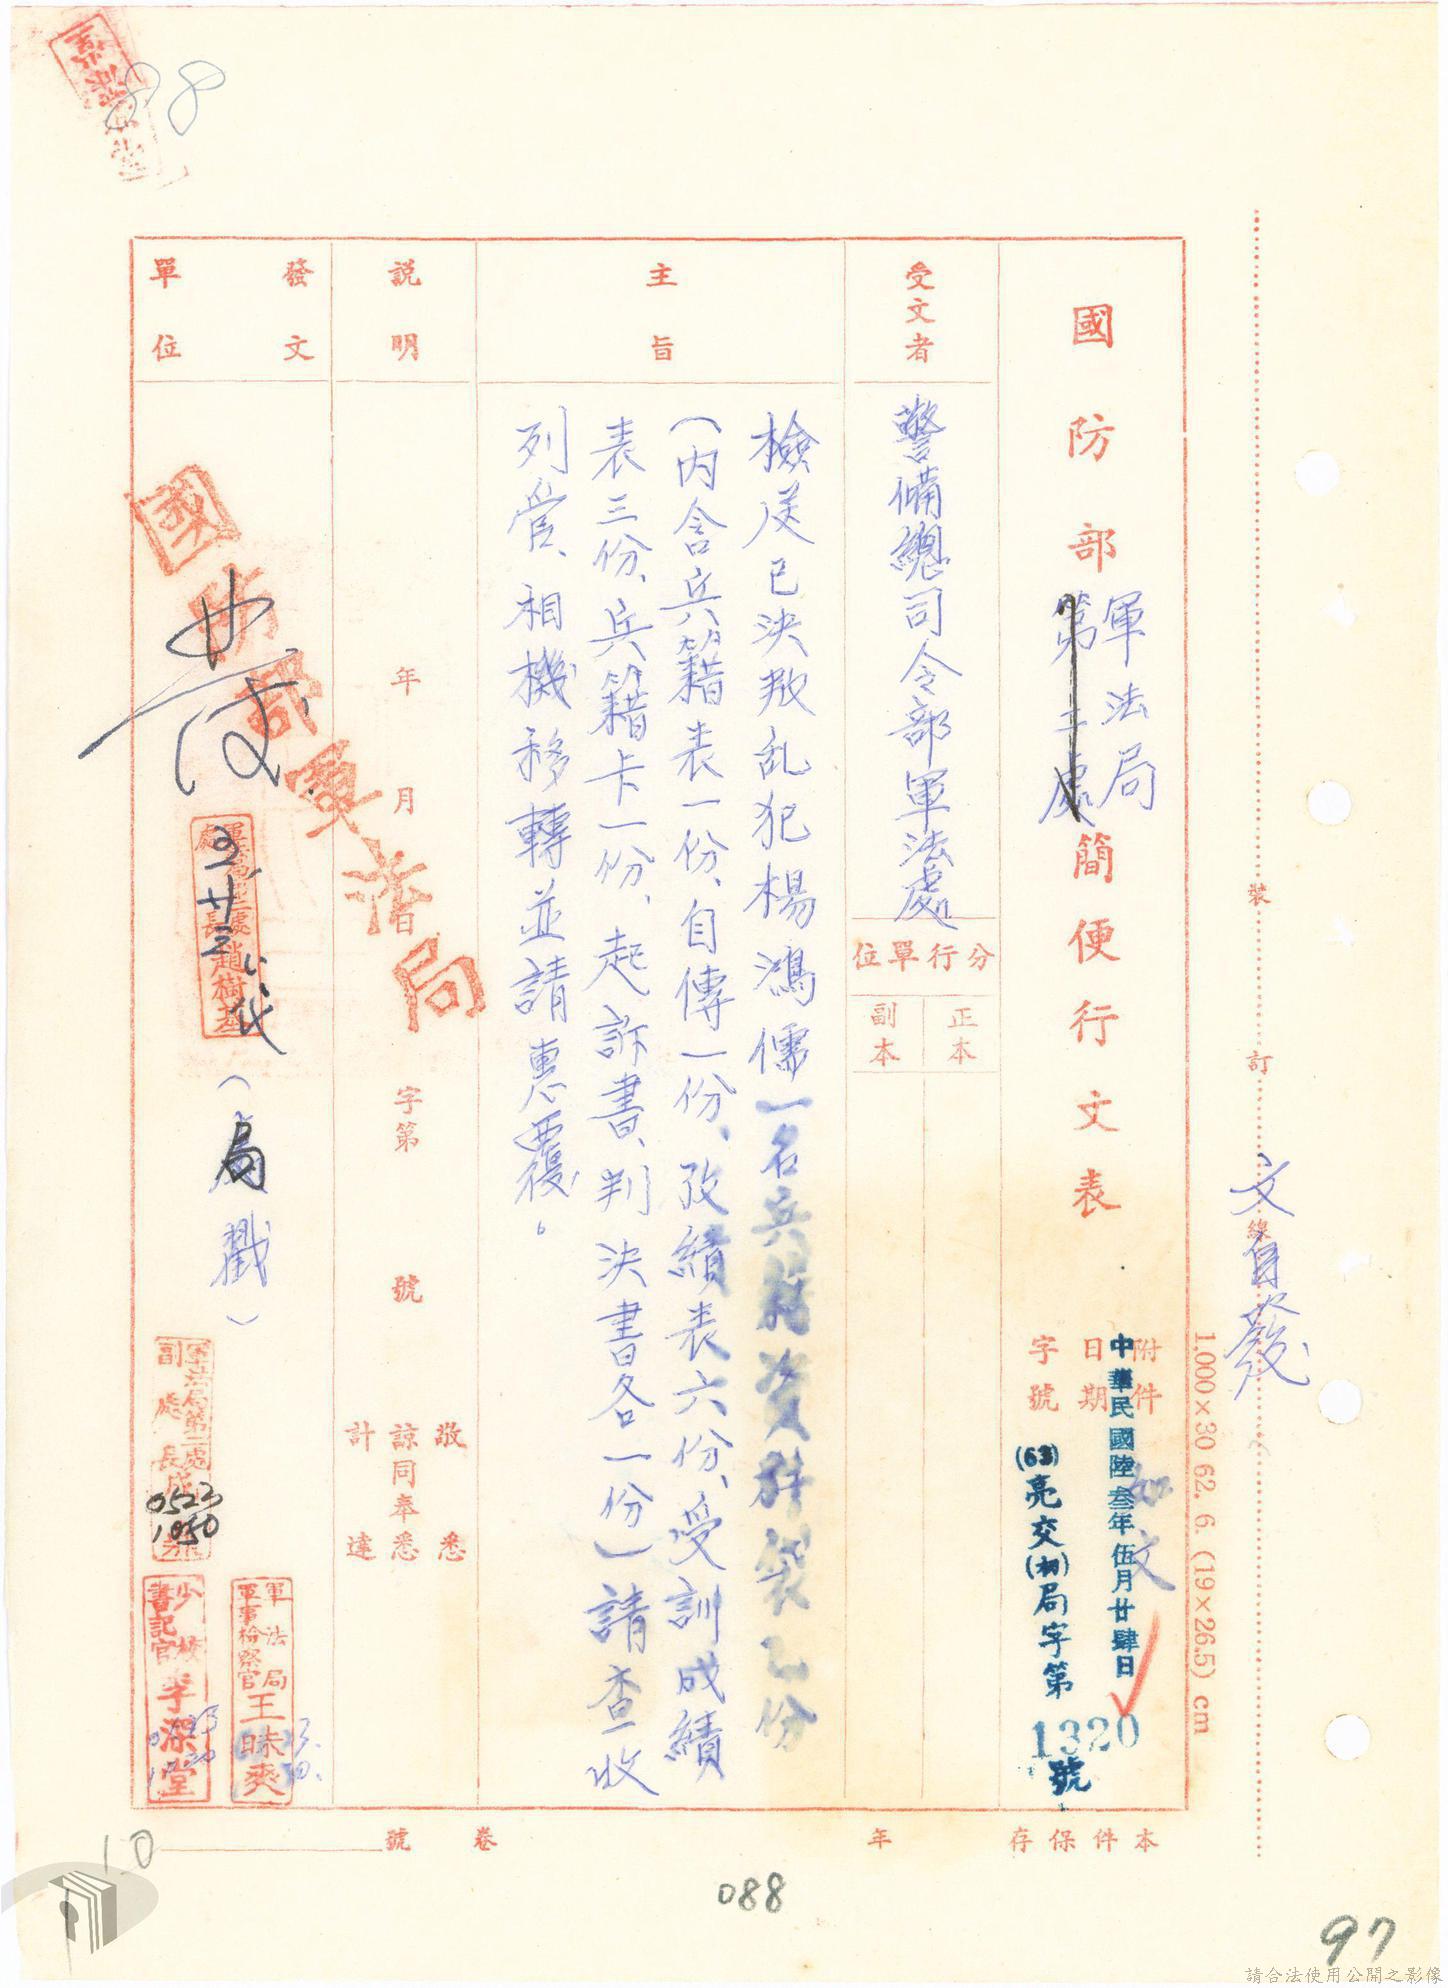 88
國防部軍法局簡便行文表
第二處
附件
如文
日期
中華民國陸叁年伍月廿肆日
字號
(63)亮交(初)局字第1320號
受文者
警備總司令部軍法處
分行單位
正本
副本
主旨
檢送已決叛乱犯楊鴻儒一名兵籍資料袋乙份
(內含兵籍表一份、自傳一份、攷績表六份、受訓成績
表三份、兵籍卡一份、起訴書、判決書各一份)請查收
列管、相機移轉並請惠覆。
說明
年月日字第號
敬悉
諒同奉悉
計達
發文單位
國防部軍法局
處長趙樹基
代
(局戳)
軍法局第二處
副處長
0523
1050
軍法局
軍事檢察官王昧爽
少校書記官李深堂
本件保存年卷號
裝訂線
文自發
1,000×30 62. 6. (19×26.5) cm
10
088
97
請合法使用公開之影像